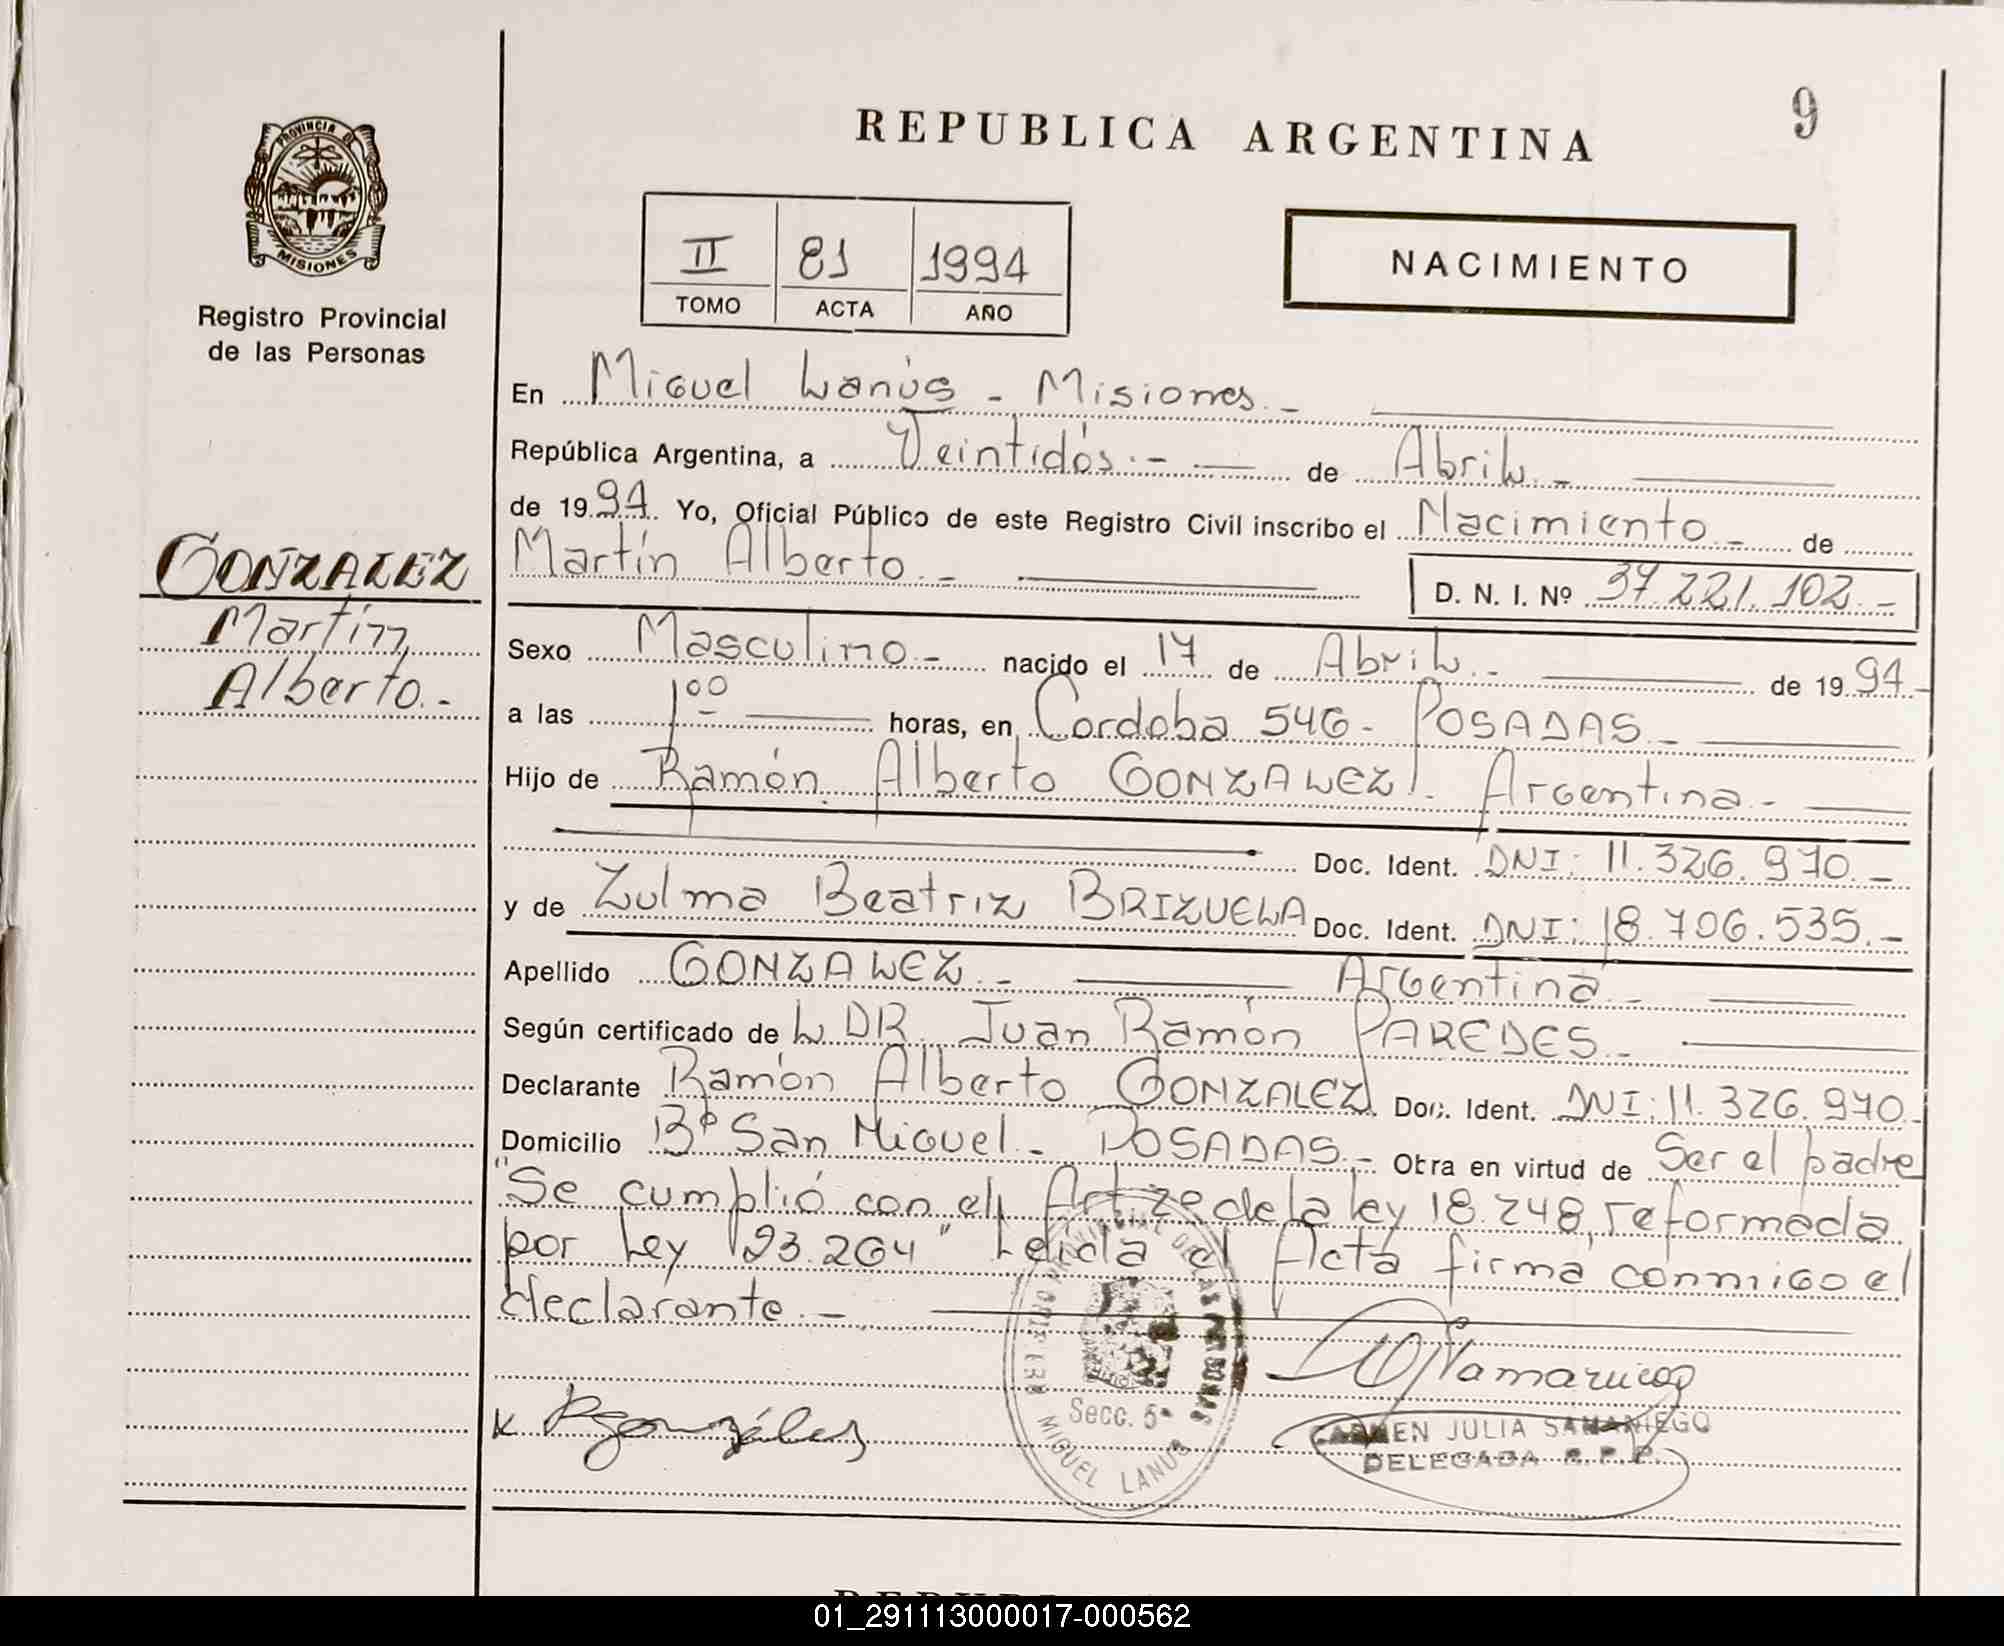 9
REPUBLICA ARGENTINA
PROVINCIA DE
MISIONES
Registro Provincial
de las Personas
II 81 1994
TOMO ACTA AÑO
NACIMIENTO
En Miguel Lanús - Misiones.-
República Argentina, a Veintidós.- de Abril.-
de 1994. Yo, Oficial Público de este Registro Civil inscribo el Nacimiento.- de
GONZALEZ
Martín
Alberto.-
Martín Alberto.- D. N. I. Nº 37.221.102.-
Sexo Masculino.- nacido el 17 de Abril.- de 1994.-
a las 1⁰⁰ horas, en Cordoba 546- POSADAS.-
Hijo de Ramón Alberto GONZALEZ.- Argentina.-
Doc. Ident. DNI: 11.326.970.-
y de Zulma Beatriz BRIZUELA Doc. Ident. DNI: 18.706.535.-
Apellido GONZALEZ.- Argentina.-
Según certificado de L DR. Juan Ramón PAREDES.-
Declarante Ramón Alberto GONZALEZ. Doc. Ident. DNI: 11.326.970.-
Domicilio Bº San Miguel.- POSADAS.- Otra en virtud de Ser el padre
"Se cumplió con el Art 2º de la ley 18.248, reformada
por Ley 23.264" Leída el Acta firma conmigo el
declarante.-
Secc. 5ª
MIGUEL LANUS
CARMEN JULIA SAMANIEGO
DELEGADA R.P.P.
01_291113000017-000562